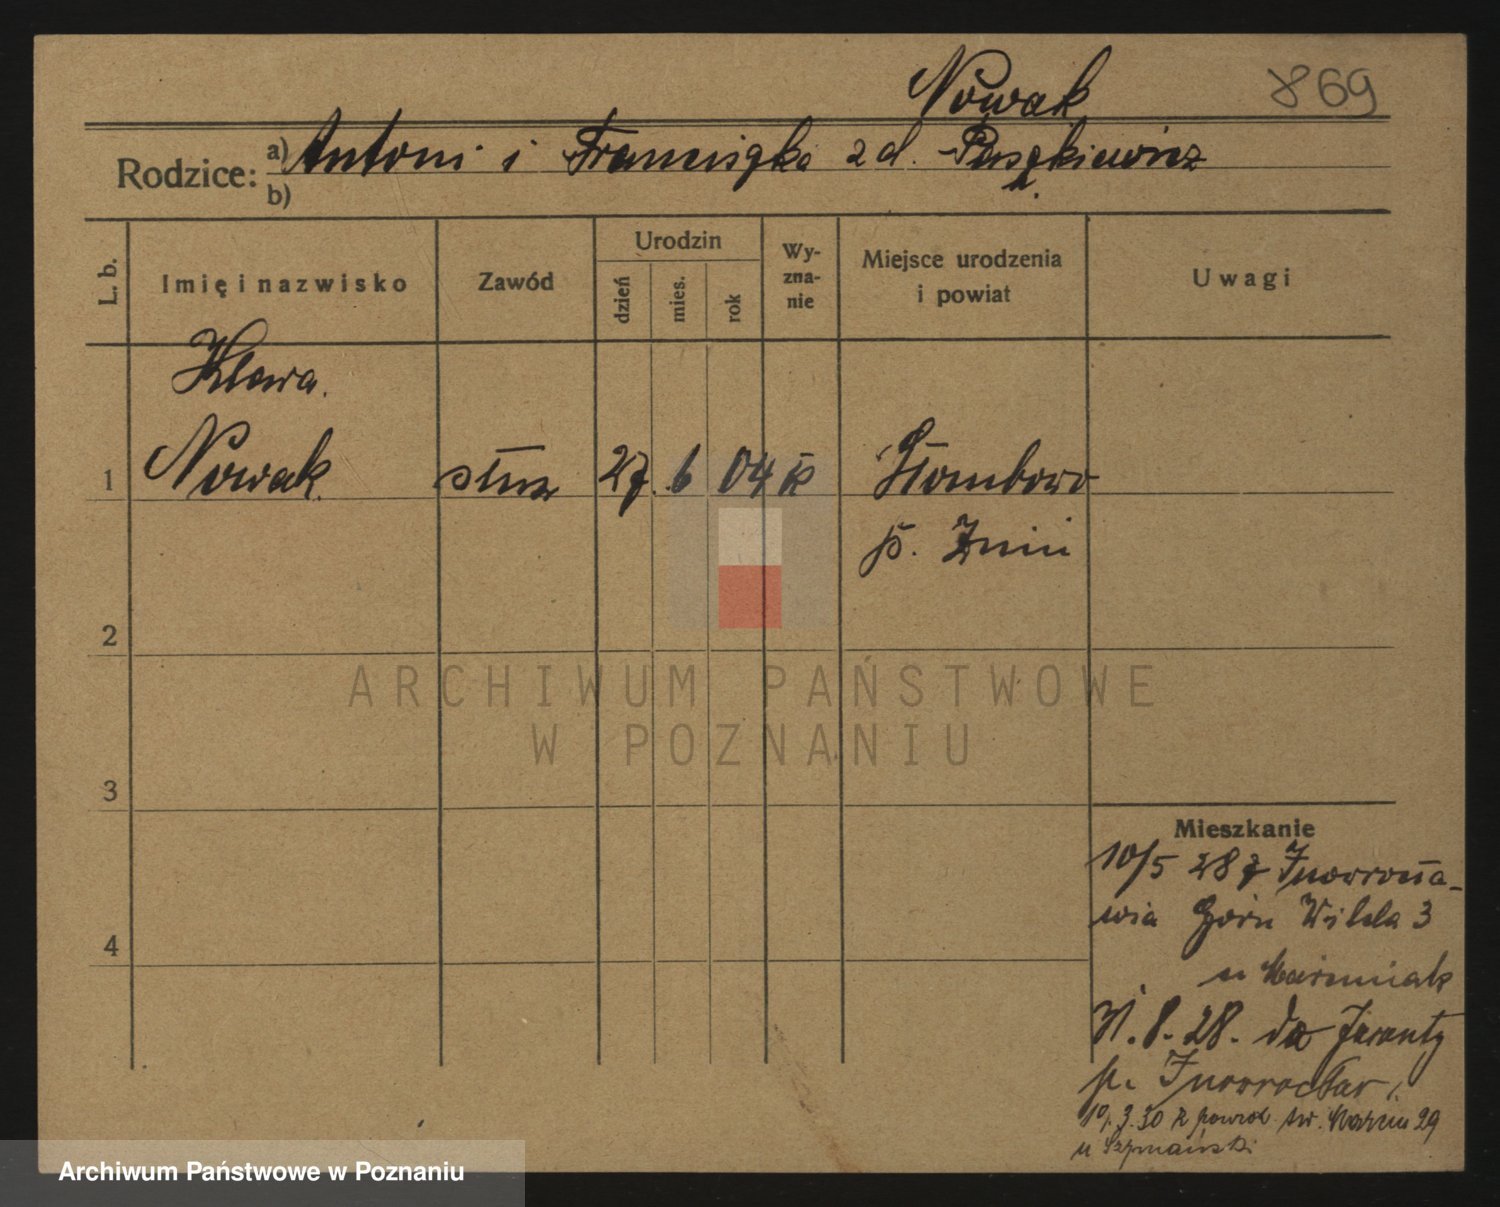 Nowak 869
Rodzice: a) Antoni i Franciszka z d. Paszkiewicz
b)
L. b. Imię i nazwisko Zawód Urodzin dzień mies. rok Wy-zna-nie Miejsce urodzenia i powiat Uwagi
Klara.
1 Nowak służ 27. 6 04 k Słombowo
p. Żnin
2
3
4
Mieszkanie
10/5 28 z Inowrocła-
wia Górn Wilda 3
u Marciniak
31.8.28. do Jaranty
p. Inowrocław
10.3.30 z powrot. św. Marcin 29
u Szymański
ARCHIWUM PAŃSTWOWE
W POZNANIU
Archiwum Państwowe w Poznaniu